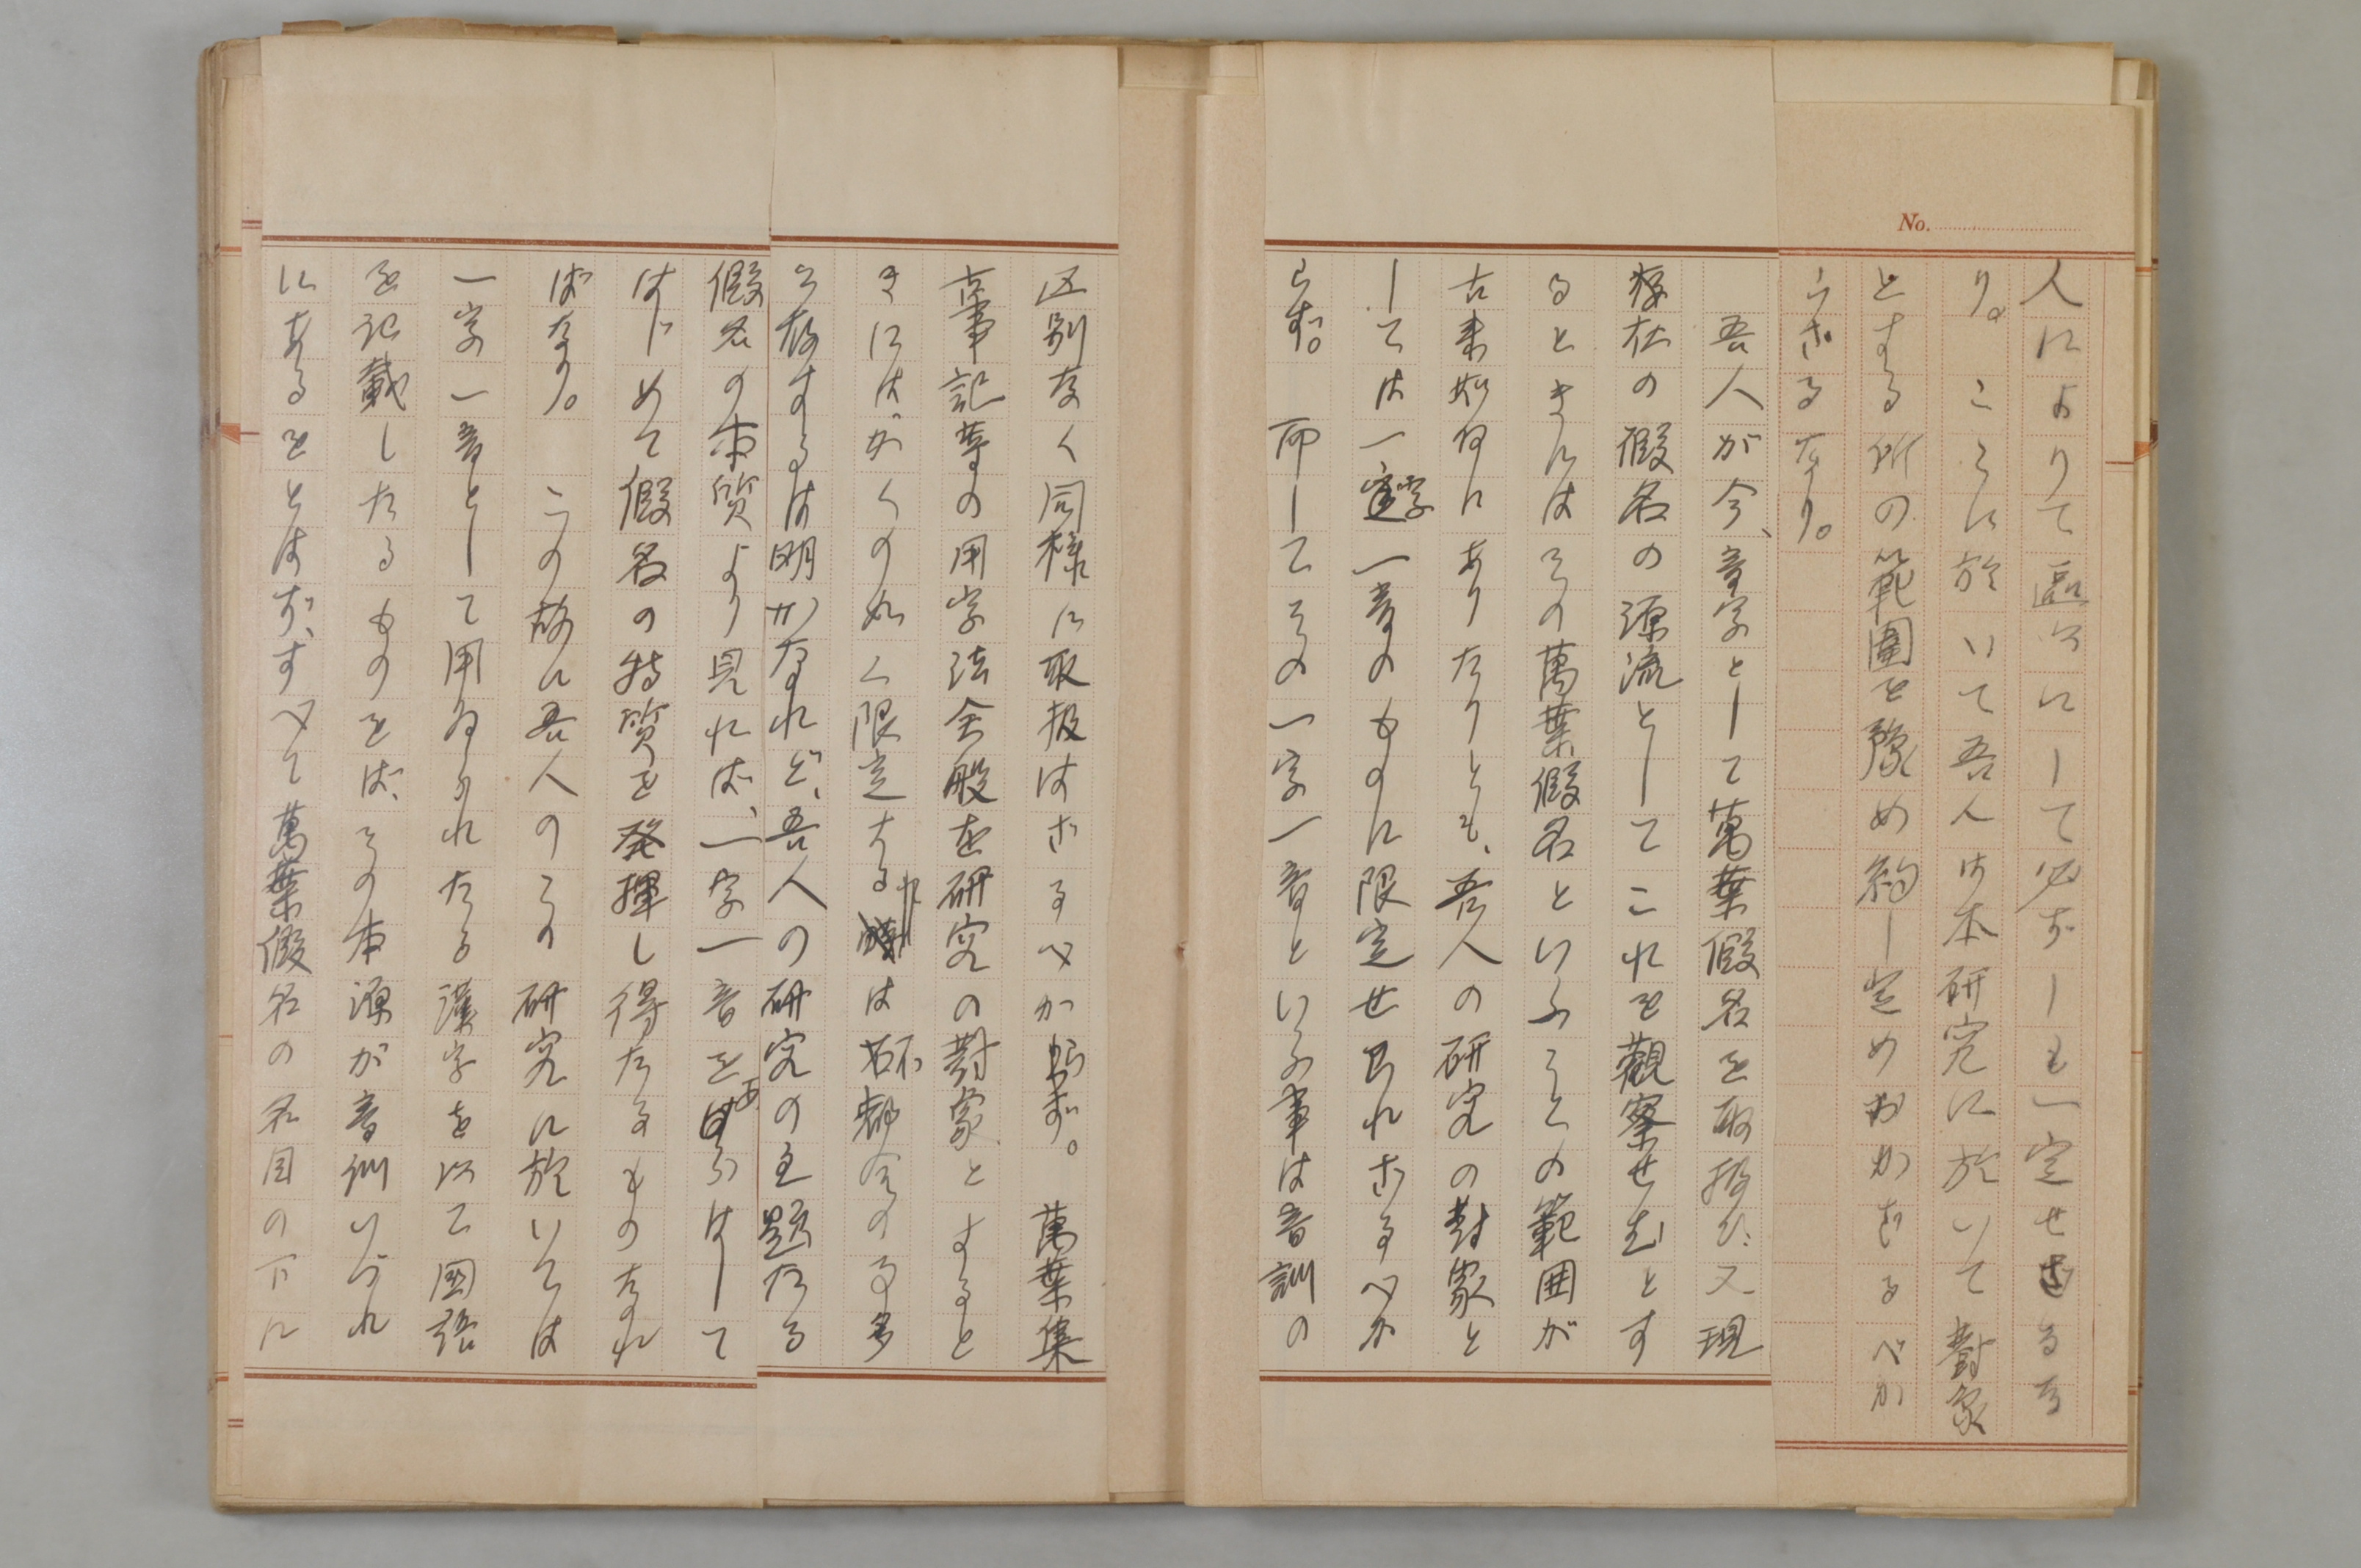 No.
人によりて區々にして必ずしも一定せざるな
り。こゝに於いて吾人は本研究に於いて對象
とする所の範圍を豫め約し定めおかざるべか
らざるなり。
吾人が今、音字として萬葉假名を取扱ひ、又現
存在の假名の源流としてこれを觀察せむとす
るときにはその萬葉假名といふことの範囲が
古来如何にありたりとも、吾人の研究の對象と
しては一字一音のものに限定せられざるべか
らず。而してその一字一音といふ事は音訓の
区別なく同様に取扱はざるべからず。萬葉集
古事記等の用字法全般を研究の對象とすると
きにはかくの如く限定するは不都合の事多
き存するは明かなれど、吾人の研究の主題たる
假名の本質より見れば、一字一音をあらはして
はじめて假名の特質を発揮し得たるものなれ
ばなり。この故に吾人のこの研究に於いては
一字一音として用ゐられたる漢字を以て国語
を記載したるものをば、その本源が音訓いづれ
にあるをとはず、すべて萬葉假名の名目の下に